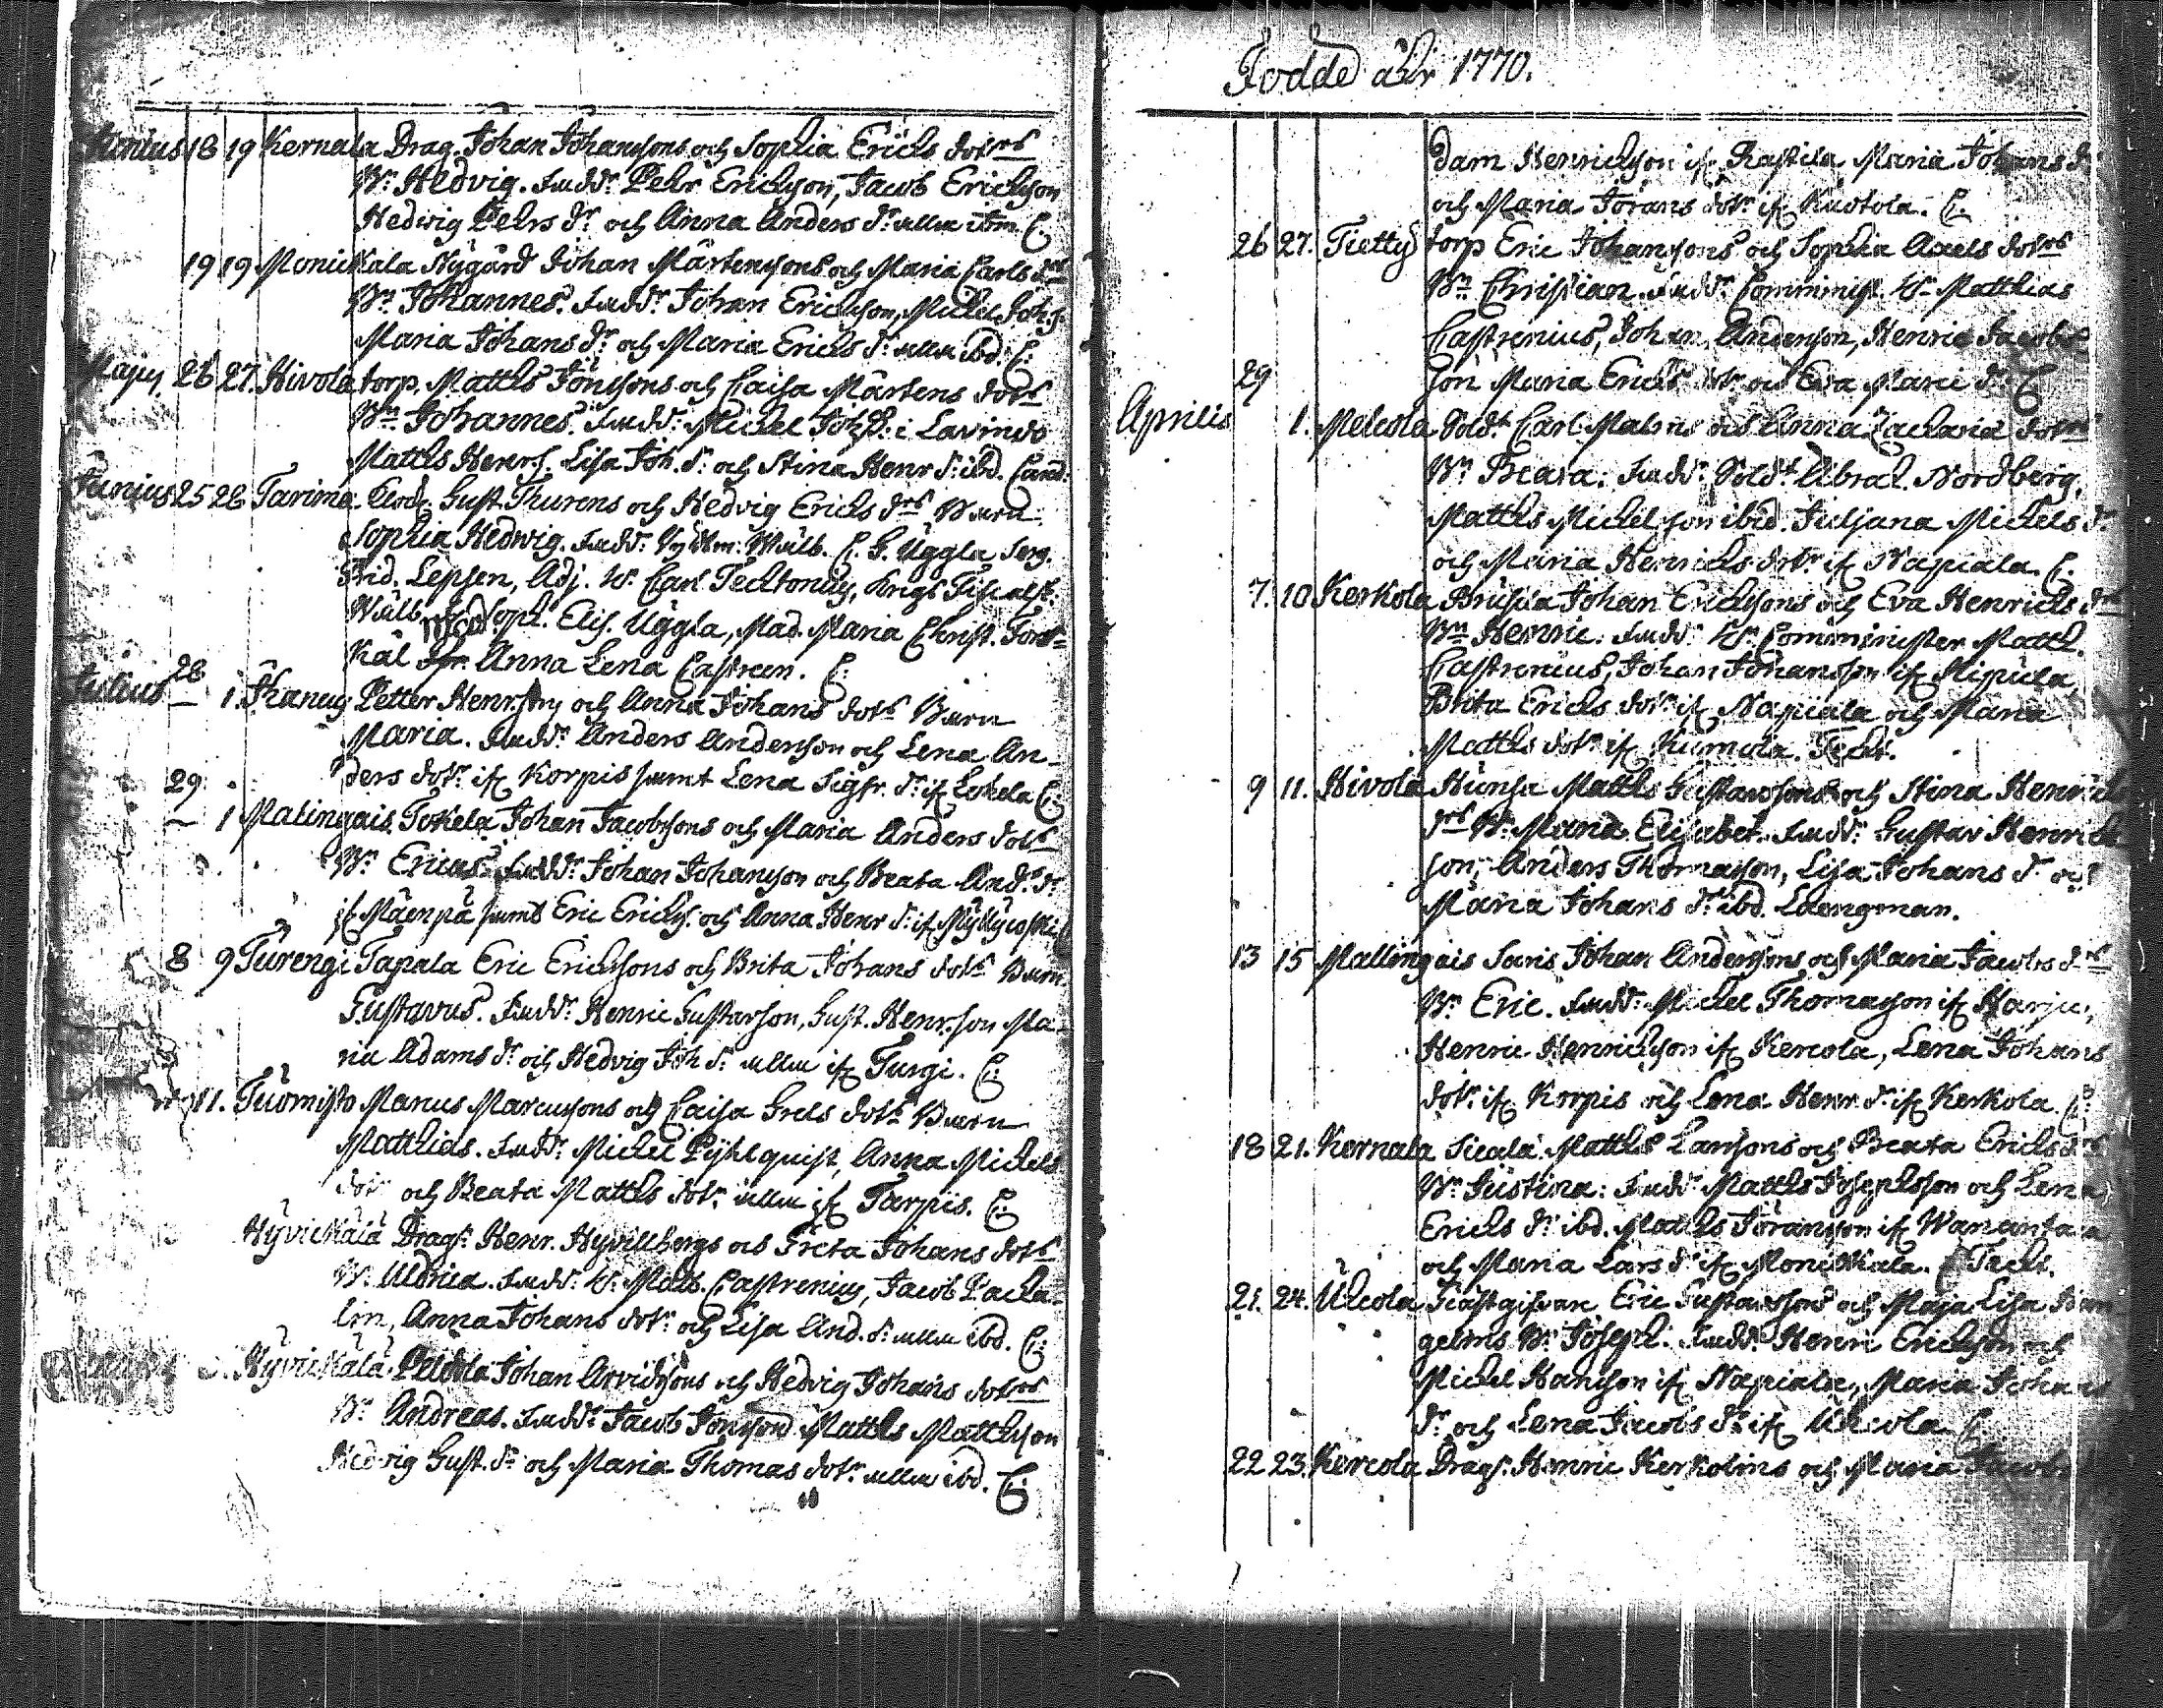 18 19 Kernala Drag. Johan Johanssons och Sophia Erichs dotrs
Bn Hedvig. Fudd. Pehr Erichsson, Jacob Erichsson
Hedvig Pehrs dr och Anna Anders dr allm ibm. C.
19 19 Monickala Nygård Johan Mårtenssons och Maria Carls drs
Bn Johannes. Fudd. Johan Erichsson, Michel Joh.s.
Maria Johans dr och Maria Erichs dr allm ibd. C:
Majus 26 27. Hivola torp. Matths Jönssons och Caisa Mårtens dotrs
Bn Johannes. Fudd. Michel Joh.s. i Lavindo
Matths Henr.s. Lisa Joh. dr och Stina Henr dr ibd. Cand.
Junius 25 28 Tarima Gust Thurens och Hedvig Erichs drs Barn
Sophia Hedwig. Fudd. Wälb. C. G. Uggla Serg.
Frid. Lepsen, Adj. Hr Carl Techtonius,
Wälb. Soph. Elis. Uggla, Mad. Maria Christ. Fors-
Anna Lena Castreen. C:
Julius 28 1 Petter Henr.sons och Anna Johans dotrs Barn
Maria. Fudd. Anders Andersson och Lena An-
ders dotr if. Korpis samt Lena Sigfr. dr if. C:
29 1 Malingais Tokela Johan Jacobssons och Maria Anders dotrs
Bn Ericus. Fudd. Johan Johansson och Beata And. dr
if. Mäenpä samt Eric Erichs. och Anna Henr dr if.
8 9 Turengi Tapala Eric Erichssons och Brita Johans dotrs Barn
Gustavus. Fudd. Henric Gustafson, Gust. Henr.son Ma-
ria Adams dr och Hedvig Joh dr allm if. Turgi. C:
11. Tuomisto Marcus Marcussons och Caisa Grels dotrs Barn
Matthias. Fudd. Michel Pyhlquist, Anna Michels
dotr och Beata Matths dotr allm if. Tarpis. C:
Hyvickälä Drag. Henr. Hyvillbergs och Greta Johans dotrs
Bn Ulbrica. Fudd. Hr Matts. Castrenius, Jacob Packa-
lin, Anna Johans dotr och Lisa And. dr allm ibd. C:
Hyvickälä Peldola Johan Arvidssons och Hedvig Johans dotrs
Bn Andreas. Fudd. Jacob Jönsson Matths Matthsson
Hedvig Gust. dr och Maria Thomas dotr allm ibd. C:
Födde åhr 1770.
dam Henrichsson if. Rastila Maria Johans dr
och Maria Jörans dotr if. Kustola. C.
26 27. Tiettys torp Eric Johanssons och Sophia Axels dotrs
Bn Christian. Fudd. Comminist. Hr Matthias
Castrenius, Johan Andersson, Henric Jacobs
29 son Maria Erichs dotr och Eva Marci dr C
Aprilis 1. Melcola Sold. Carl Malms och Anna Zacharia dotrs
Bn Beata. Fudd. Sold. Abrah. Nordberg,
Matths Michelsson ibid. Juljana Michels dr
och Maria Henrichs dotr if. Napiala. C.
7. 10 Kerkola Brusila Johan Erichssons och Eva Henrichs drs
Bn Henric. Fudd. Hr Comminister Matth.
Castrenius, Johan Johansson if. Alipula,
Brita Erichs dotr if. Napiala och Maria
Matths dotr if. Kumola. Techt.
9 11. Hivola Hunsa Matths Gustavssons och Stina Henrichs
drs Bn Maria Elisabet. Fudd. Gustav Henrich-
son, Anders Thomasson, Lisa Johans dr och
Maria Johans dr ibd. Laengman.
13 15 Mallingais Saris Johan Anderssons och Maria Jacobs drs
Bn Eric. Fudd. Michel Thomasson if. Harju,
Henric Henrichsson if. Kercola, Lena Johans
dotr if. Korpis och Lena Henr. dr if. Kerkola. C:
18 21. Kernala Sicala Matths Larssons och Beata Erichs drs
Bn Justina. Fudd. Matths Josephsson och Lena
Erichs dr ibd. Matths Jöransson if. Wanantaca
och Maria Lars dr if. Monickala. Techt.
21. 24. Ulcola Gästgifvare Eric Gustafssons och Maja Lisa
gelms Bn Joseph. Fudd. Henric Erichsson och
Michel Hansson if. Napiala, Maria Johans
dr och Lena Jacobs dr if. Ulcola C
22 23. Kercola Drag. Henric Kerkolins och Maria Jacobs